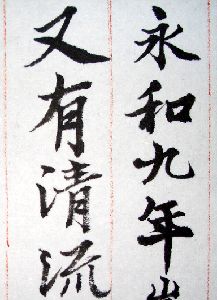 永和九年
又有清流